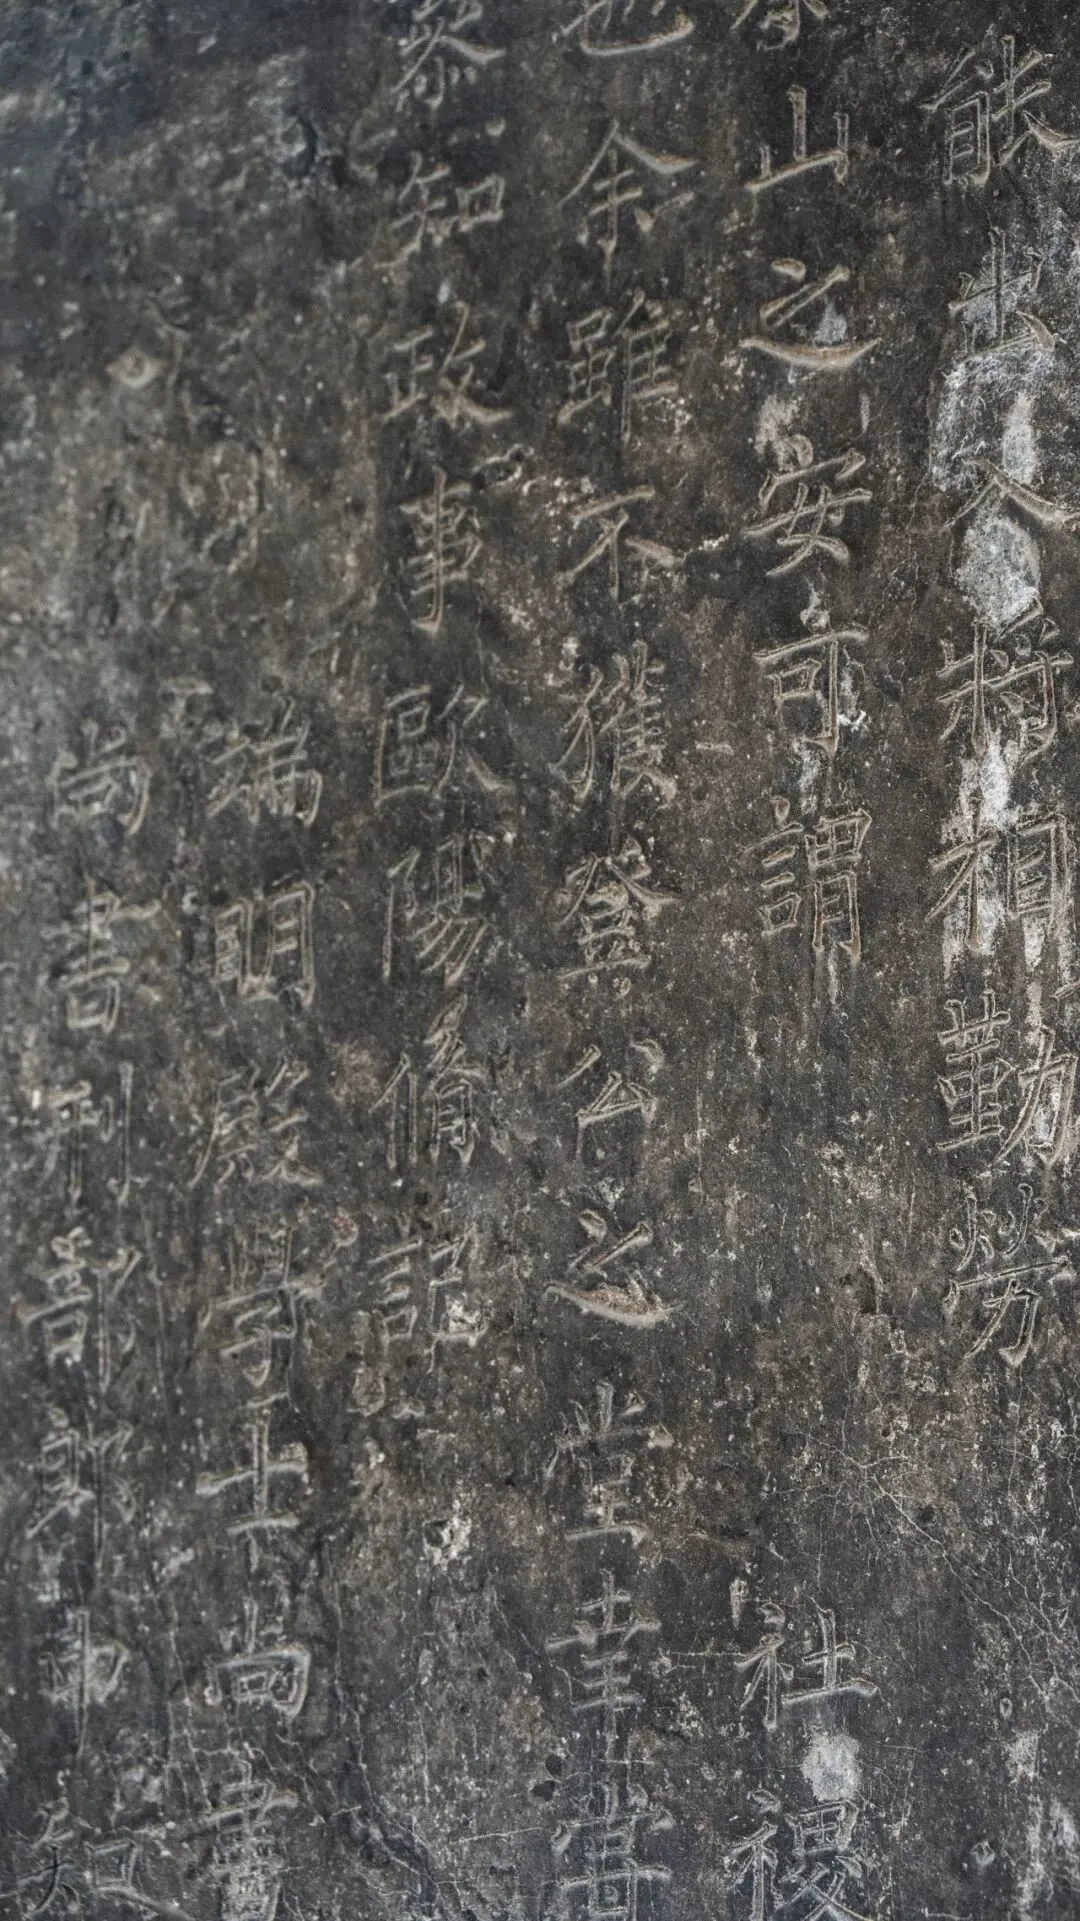 能出入將相勤勞
泰山之安可謂社稷
也余雖不獲登公之堂幸嘗
叅知政事歐陽脩記
端明殿學士尚書
尚書刑部郎中知